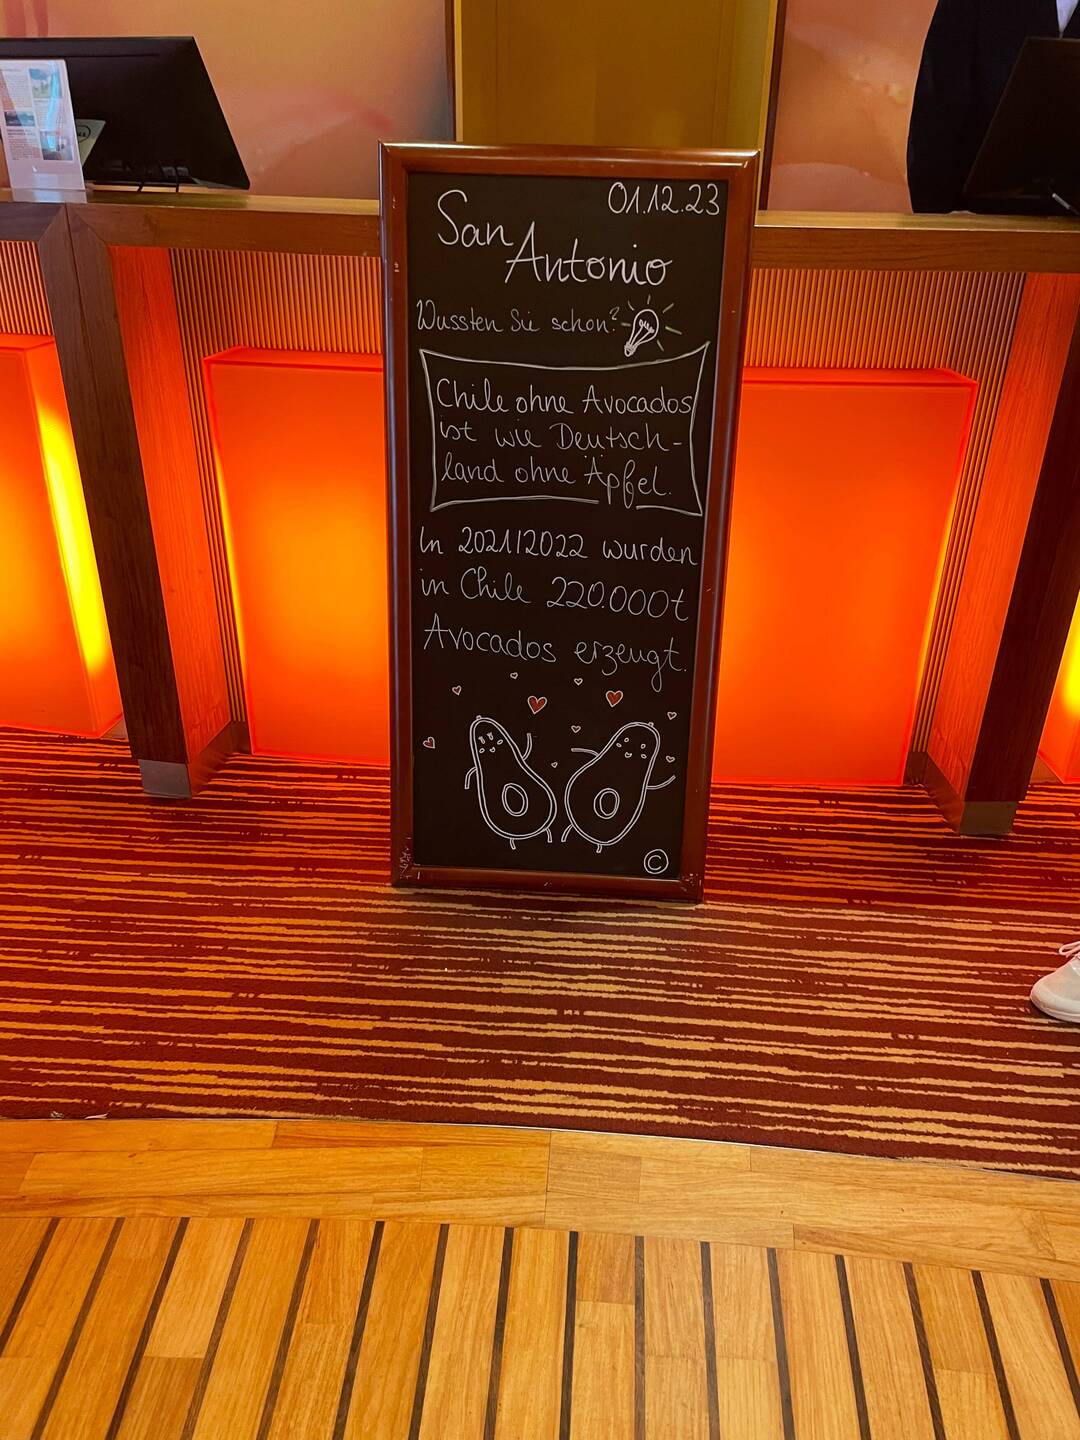 01.12.23
San
Antonio
Wussten Sie schon?
Chile ohne Avocados
ist wie Deutsch-
land ohne Äpfel.
In 2021/2022 wurden
in Chile 220.000t
Avocados erzeugt.
©